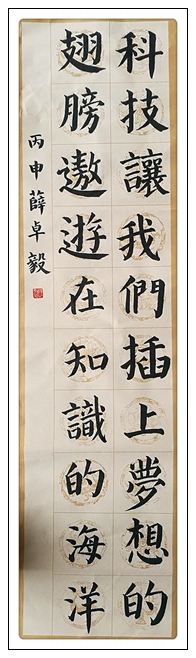 科技讓我們插上夢想的
翅膀遨遊在知識的海洋
丙申薛卓毅